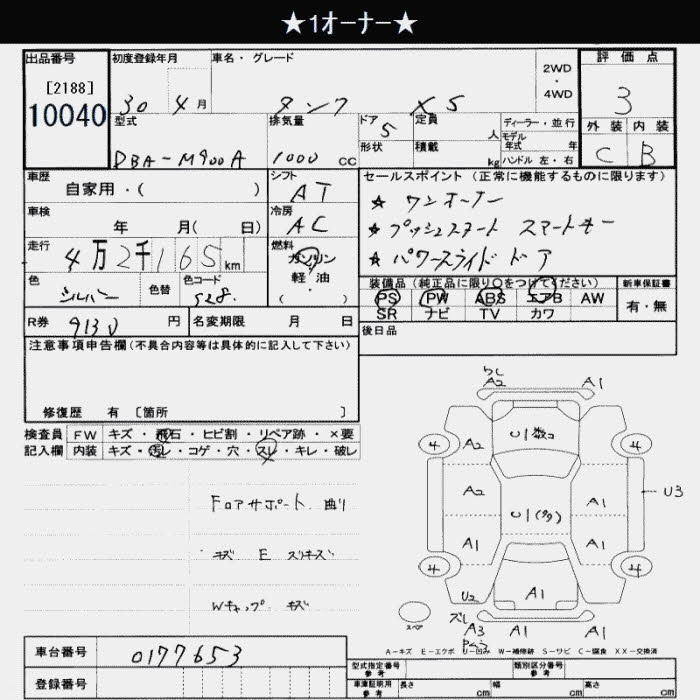 ★1オーナー★
出品番号
[2188]
10040
初度登録年月 車名・グレード 2WD・4WD
30 4月 タンク XS
評価点
3
型式 排気量 ドア 定員 ディーラー・並行
DBA-M900A 1000CC 5 人 モデル年式 年
形状 積載 kg ハンドル 左・右
外装 内装
C B
車歴 自家用・( )
シフト AT
車検 年 月( 日)
冷房 AC
走行 4万2千165km
燃料 ガソリン 軽・油 ( )
色 シルバー 色替 色コード S28.
セールスポイント(正常に機能するものに限ります)
★ ワンオーナー
★ プッシュスタート スマートキー
★ パワースライドドア
装備品(純正品に限り○をつけてください) 新車保証書
PS PW ABS エアB AW 有・無
SR ナビ TV カワ
R券 9130円 名変期限 月 日
後日品
注意事項申告欄(不具合内容等は具体的に記入して下さい)
修復歴 有 〔箇所 〕
検査員 FW キズ・飛石・ヒビ割・リペア跡・×要
記入欄 内装 キズ・汚レ・コゲ・穴・スレ・キレ・破レ
Fロアサポート 曲リ
キズ E スリキズ
Wキャップ キズ
A2 A1
4 A2 U1数コ 4
A2 U1(多) A1 U3
A1 A1
4 4
U2 A1
スペア
ズレ
A3 A1
A-キズ E-エクボ U-凹み W-補修跡 S-サビ C-腐食 XX-交換済
車台番号 0177653
登録番号
型式指定番号 参考 類別区分番号 参考
車庫証明用 参考 長さ cm 幅 cm 高さ cm